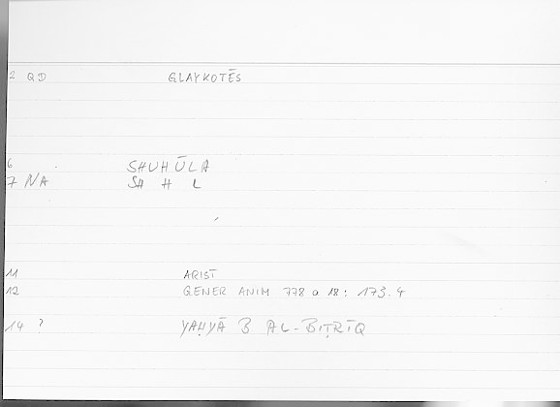 2 QD GLAYKOTĒS
6 SHUHŪLA
7 NA SH H L
11 ARIST
12 GENER ANIM 778 a 18 : 173.4
14 ? YAḤYĀ B AL-BIṬRĪQ